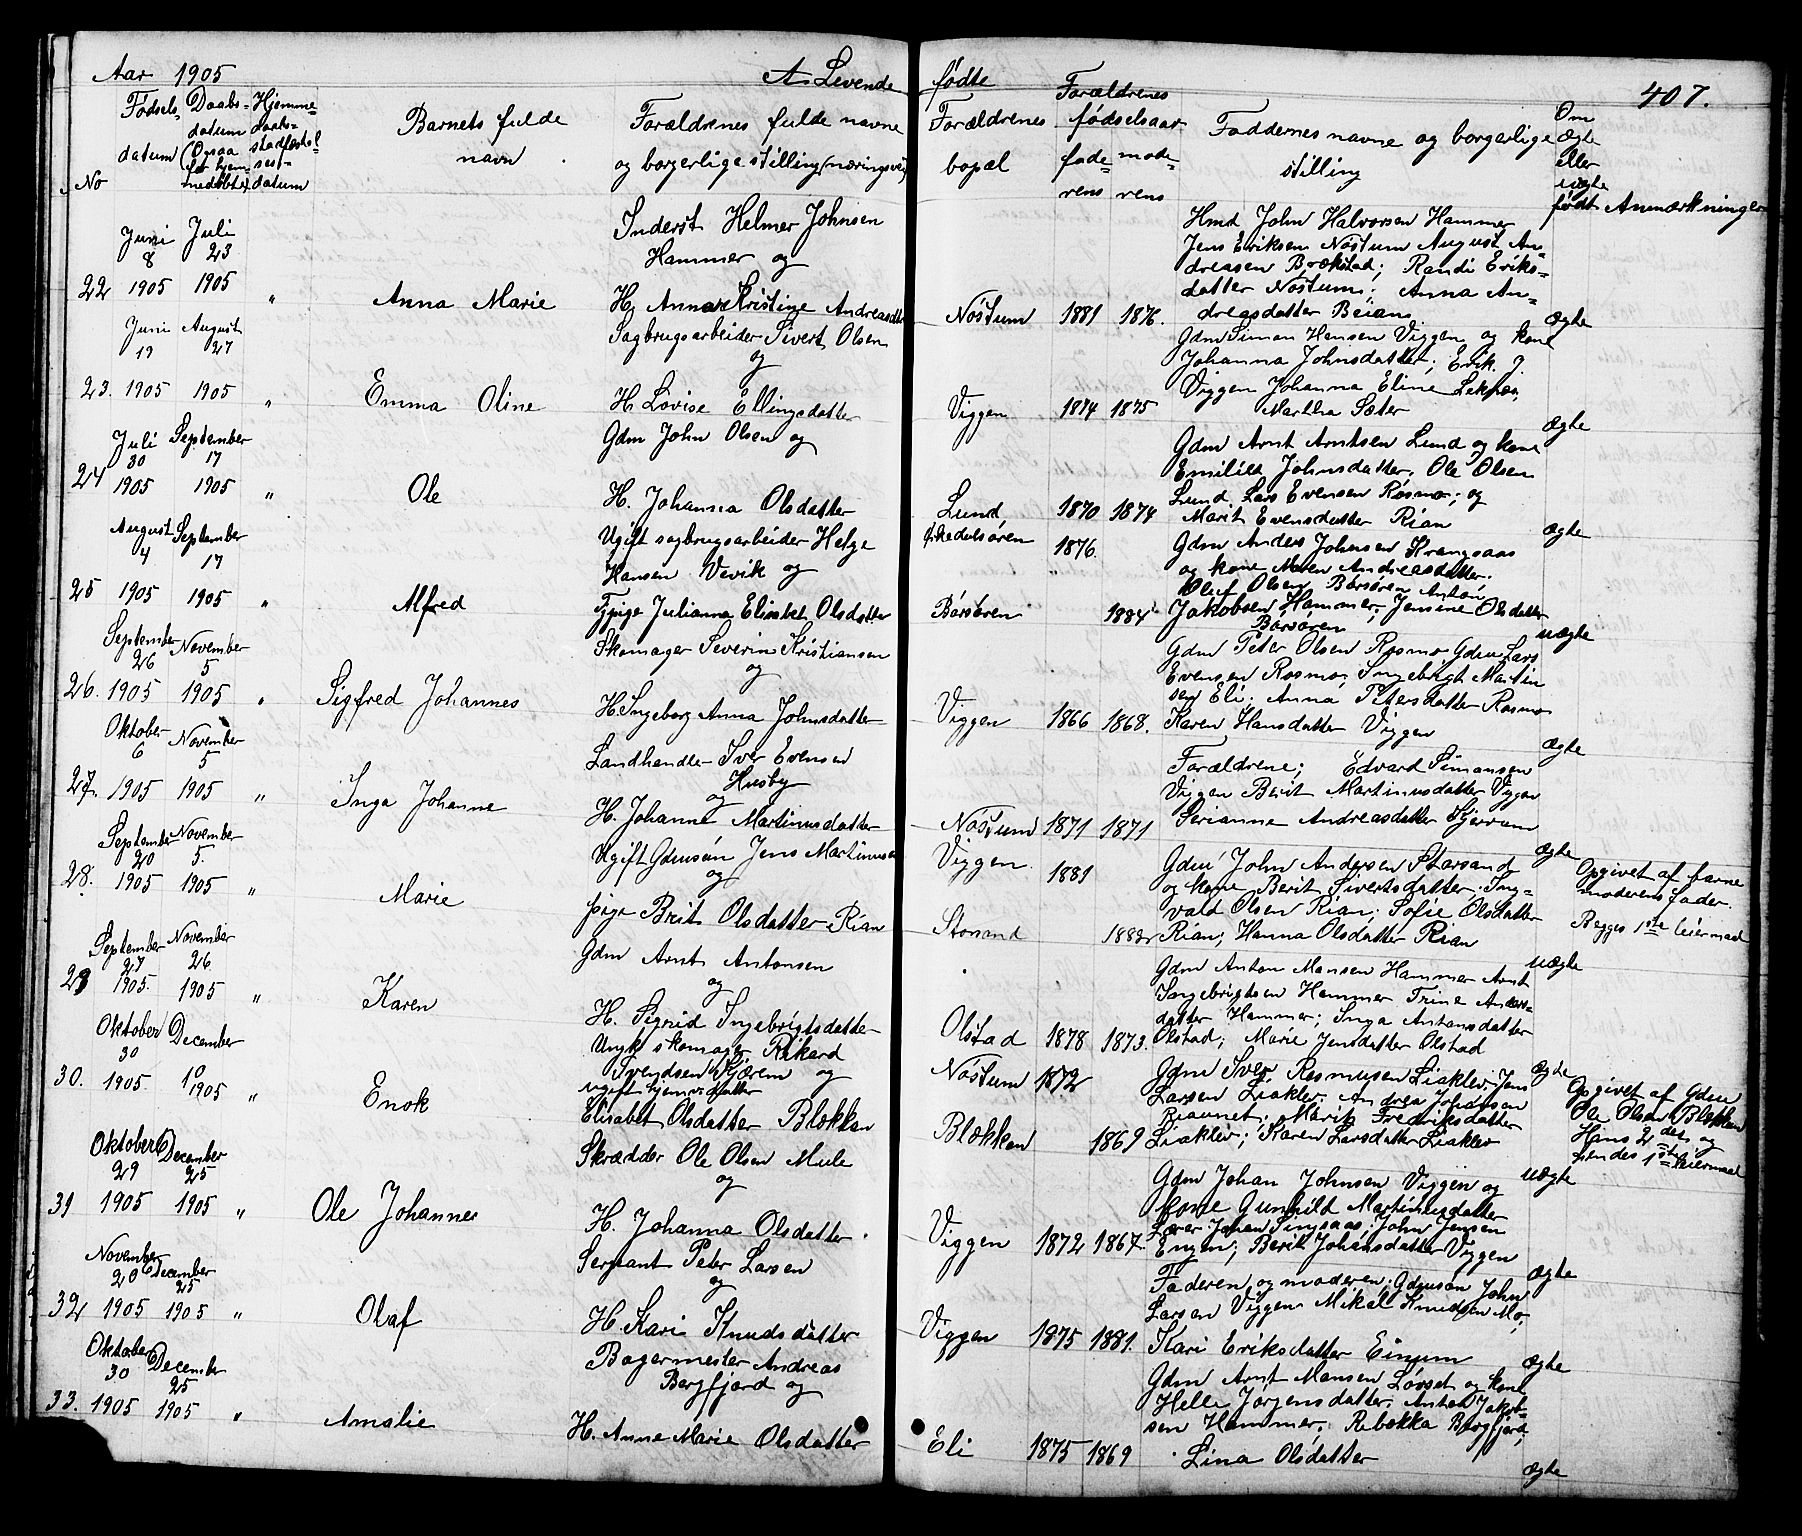 Aar 1905
A. Levende
fødte
407.
No
Fødsels datum
Daabs- datum (Ogsaa for hjem- medøbte)
Hjemme daabs- stadfæstel sest- datum
Barnets fulde navn
Forældrenes fulde navne og borgerlige stilling (næringsvei)
Forældrenes bopæl
Forældrenes fødselsaar
fade- rens
mode- rens
Faddernes navne og borgerlige stilling
Om ægte eller uægte født
Anmærkninger
22
Juni 8 1905
Juli 23 1905
"
Anna Marie
Inderst Helmer Johnsen
Hammer og
H. Anna Kristine Andreasdtr
Nøstum
1881
1876.
Hmd John Halvorsen Hammer
Jens Eriksen Nøstum August An-
dreasen Brækstad; Randi Eriks-
datter Nøstum; Anna An-
dreasdatter Beian
ægte
23.
Juni 19 1905
August 27 1905
"
Emma Oline
Sagbrugsarbeider Sivert Olsen
og
H. Lovise Ellingsdatter
Viggen
1874
1875
Gdm Simon Hansen Viggen og kone
Johanna Johnsdatter; Erik ?
Viggen Johanna Eline
Martha Sæter
ægte
24
Juli 30 1905
September 17 1905
"
Ole
Gdm John Olsen og
H. Johanna Olsdatter
Lund
1870
1874
Gdm Arnt Arntsen Lund og kone
Emilie Johnsdatter. Ole Olsen
Lund Lars Evensen Rosmo; og
Marit Evensdatter Rian
ægte
25
August 4 1905
September 17 1905
"
Alfred
Ugift sagbrugsarbeider Helge
Hansen Vevik og
Tjpige Julianna Elisabet Olsdatter
Ørkedalsøren
Børsøren
1876.
1884
Gdm Anders Johnsen Krangsaas
og kone Maren Andreasdatter.
Oluf Olsen Børsøren Anton
Jakobsen Hammer; Jensine Olsdatter
Børsøren
uægte
26.
September 26 1905
November 5 1905
"
Sigfred Johannes
Skomager Severin Kristiansen
og
H. Ingeborg Anna Johnsdatter
Viggen
1866
1868.
Gdm Peter Olsen Rosmo Gdm Lars
Evensen Rosmo, Ingebrigt Martin
sen Eli. Anna Petersdatter Rosmo
Karen Hansdatter Viggen
ægte
27.
Oktober 6 1905
November 5 1905
"
Inga Johanne
Landhandler Iver Evensen
Husby
og
H. Johanne Martinusdatter
Nøstum
1871
1871
Forældrene; Edvard Simonsen
Viggen Berit Martinusdatter Viggen
Serianne Andreasdatter
ægte
28.
September 20 1905
November 5. 1905
"
Marie
Ugift Gdmsøn Jens Martinusen
og
pige Brit Olsdatter Rian
Viggen
Storsand
1881
1882
Gdm John Andersen Storsand
og kone Berit Sivertsdatter. Ing-
vald Olsen Rian; Sofie Olsdatter
Rian; Hanna Olsdatter Rian
uægte
Opgivet af barne
moderens fader.
Begges 1ste leiermaal
29
September 27 1905.
November 26 1905
"
Karen
Gdm Arnt Antonsen
og
H. Sigrid Ingebrigtsdatter
Olstad
1878
1873.
Gdm Anton Monsen Hammer Arnt
Ingebrigtsen Hammer Trine Anders-
datter Hammer; Inga Antonsdatter
Olstad; Marie Jensdatter Olstad
ægte
30.
Oktober 30 1905.
December 10 1905
"
Enok
Ungk skomager Rikard
Svendsen Kjærem og
ugift hjemv. datter
Elisabet Olsdatter Blokkan
Nøstum
Blokkan
1872
1869
Gdm Iver Rasmusen Liaklev; Jens
Larsen Liaklev. Andrea Johansen
Riaunet; Marit Fredriksdatter
Liaklev; Karen Larsdatter Liaklev
uægte
Opgivet af Gdm
Ole Olsen Blokkan
Hans 2det og
hendes 1ste leiermaal
31
Oktober 29 1905
December 25 1905
"
Ole Johannes
Skrædder Ole Olsen Mule
og
H. Johanna Olsdatter.
Viggen
1872
1867.
Gdm Johan Johnsen Viggen og
kone Gunhild Martinusdatter
Lærer Johan Singsaas; John Jensen
Engen; Berit Johansdatter Viggen
ægte
32
November 20 1905
December 25 1905
"
Olaf
Sergeant Peter Larsen
og
H. Kari Knudsdatter
Viggen
1875
1881.
Faderen og moderen; Gdmsøn John
Larsen Viggen Mikal Knudsen Mo;
Kari Eriksdatter Einum
ægte
33.
Oktober 30 1905
December 25 1905
"
Amalie
Bagermester Andreas
Bergfjord og
H. Anne Marie Olsdatter
Eli
1875
1869
Gdm Arnt Monsen Lovset og kone
Helle Jørgensdatter; Anton Jakob-
sen Hammer; Rebekka Bergfjord;
Lina Olsdatter
ægte